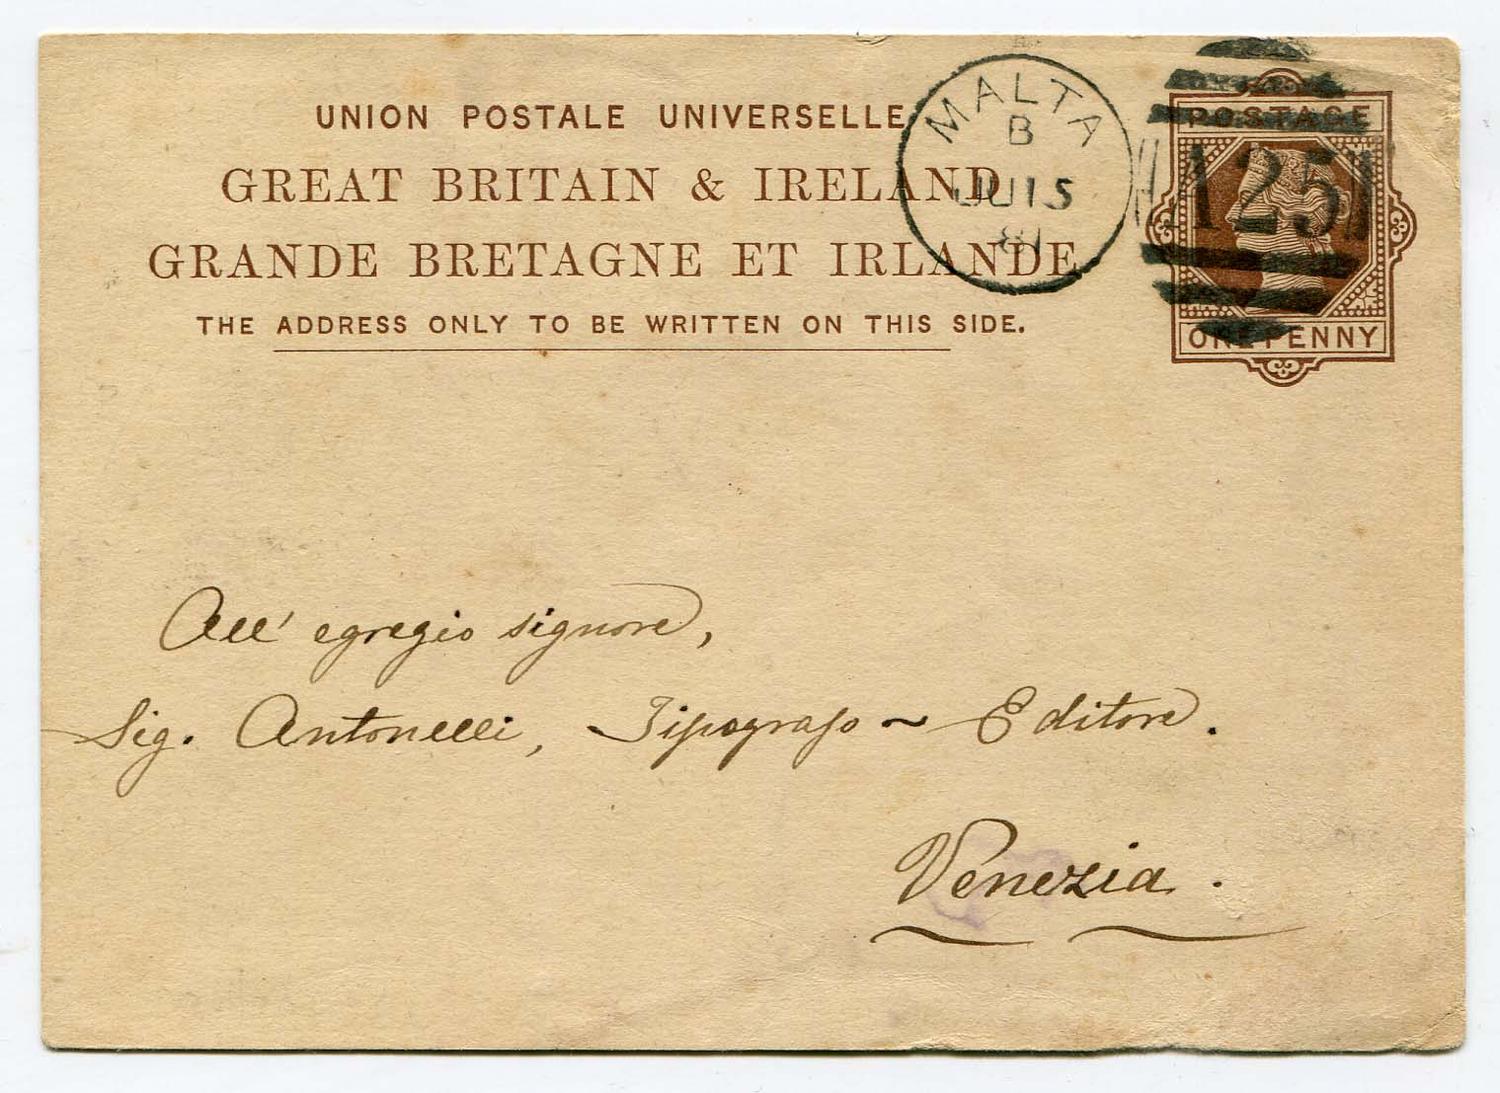 UNION POSTALE UNIVERSELLE
GREAT BRITAIN & IRELAND
GRANDE BRETAGNE ET IRLANDE
THE ADDRESS ONLY TO BE WRITTEN ON THIS SIDE.
MALTA
B
JU 15
81
A25
POSTAGE
ONE PENNY
All' egregio signore,
Sig. Antonelli, Tipografo ~ Editore.
Venezia.